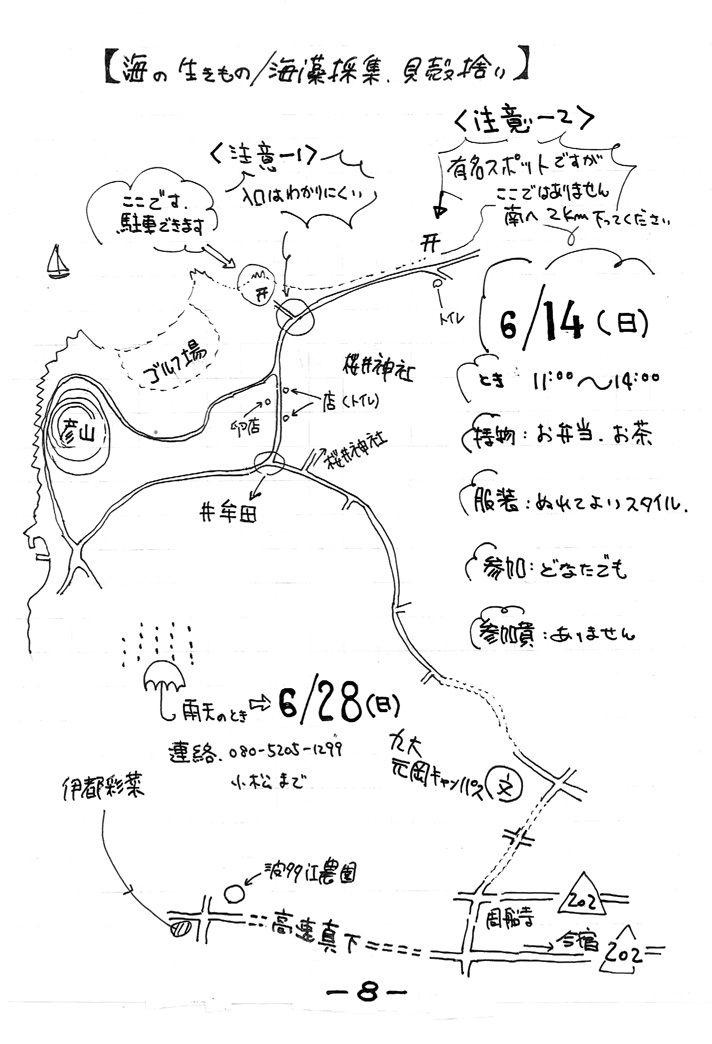 【海の生きもの/海藻採集、貝殻捨い】
〈注意ー2〉
有名スポットですが
ここではありません
南へ2km下ってください
〈注意ー1〉
入口はわかりにくい
ここです、
駐車できます
开
开
トイレ
6/14(日)
とき 11:00〜14:00
持物:お弁当、お茶
服装:ぬれてよいスタイル.
参加:どなたでも
参加費:ありません
ゴルフ場
桜井神社
店(トイレ)
卵店
彦山
桜井神社
井牟田
雨天のとき⇨6/28(日)
連絡、080-5205-1299
小松まで
九大
元岡キャンパス
文
伊都彩菜
波多江農園
高速真下
周船寺
202
今宿
202
-8-